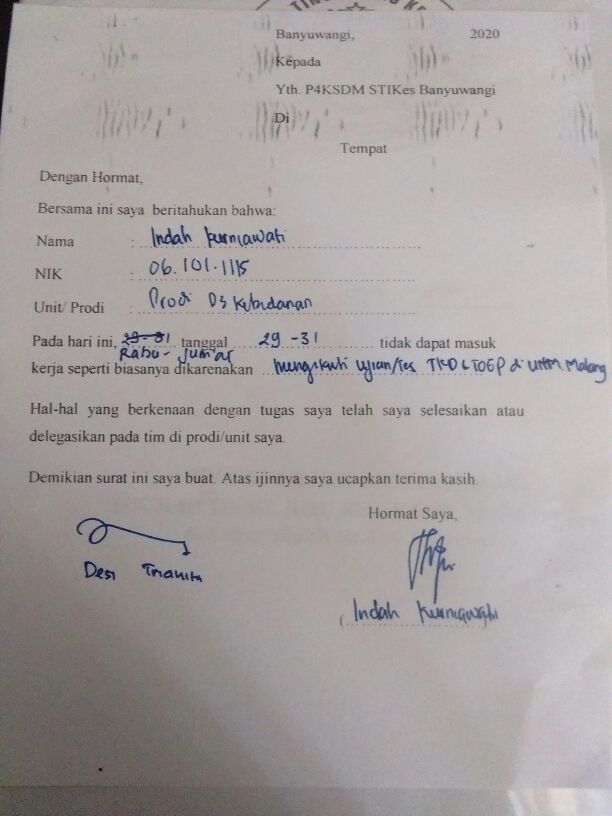 Banyuwangi, 2020
Kepada
Yth. P4KSDM STIKes Banyuwangi
Di
Tempat
Dengan Hormat,
Bersama ini saya beritahukan bahwa:
Nama : Indah Kurniawati
NIK : 06.101.1115
Unit/ Prodi : Prodi D3 Kebidanan
Pada hari ini, 29-31 tanggal 29 - 31 tidak dapat masuk
Rabu - Jum'at
kerja seperti biasanya dikarenakan mengikuti ujian/tes TKD & TOEP di Malang
Hal-hal yang berkenaan dengan tugas saya telah saya selesaikan atau
delegasikan pada tim di prodi/unit saya.
Demikian surat ini saya buat. Atas ijinnya saya ucapkan terima kasih.
Hormat Saya,
Desi Trianita
( Indah Kurniawati